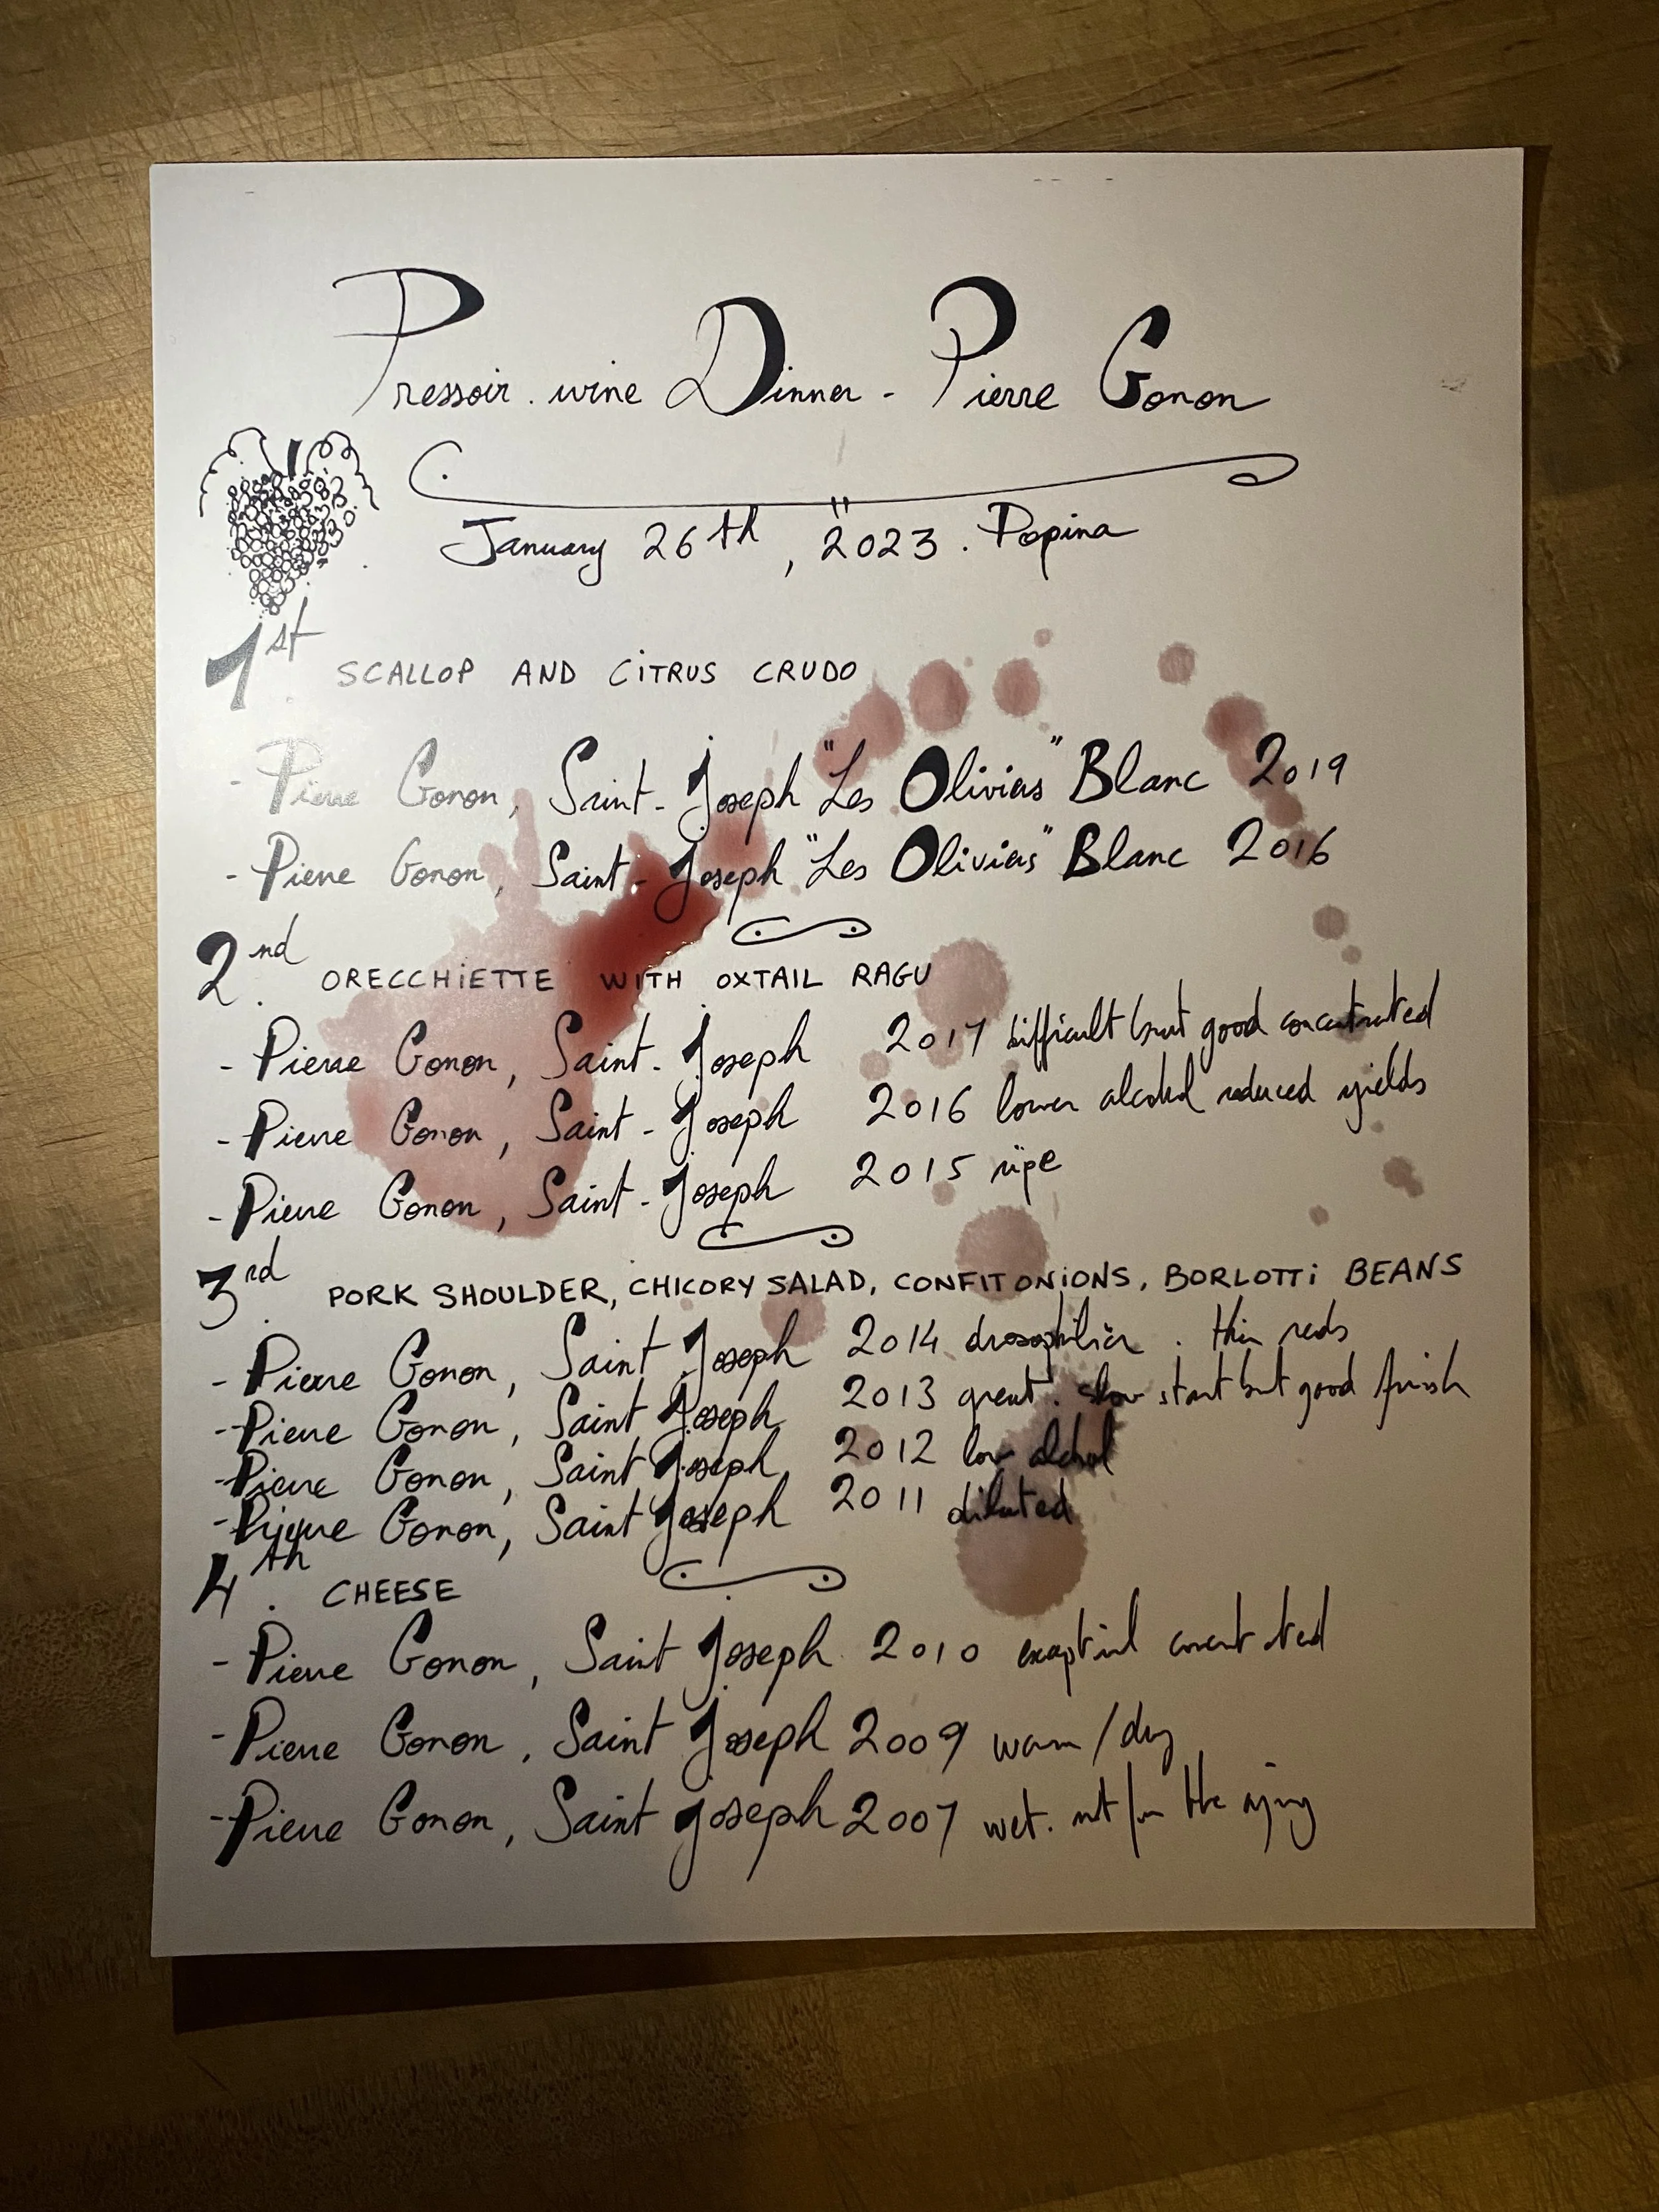 Pressoir. wine Dinner - Pierre Gonon
January 26th, 2023. Popina
1st. SCALLOP AND CITRUS CRUDO
- Pierre Gonon, Saint-Joseph "Les Oliviers" Blanc 2019
- Pierre Gonon, Saint-Joseph "Les Oliviers" Blanc 2016
2nd. ORECCHIETTE WITH OXTAIL RAGU
- Pierre Gonon, Saint-Joseph 2017 difficult but good concentrated
- Pierre Gonon, Saint-Joseph 2016 lower alcohol reduced yields
- Pierre Gonon, Saint-Joseph 2015 ripe
3rd. PORK SHOULDER, CHICORY SALAD, CONFIT ONIONS, BORLOTTI BEANS
- Pierre Gonon, Saint Joseph 2014 . thin reds
- Pierre Gonon, Saint Joseph 2013 great. slow start but good finish
- Pierre Gonon, Saint Joseph 2012 low alcohol
- Pierre Gonon, Saint Joseph 2011 diluted
4th. CHEESE
- Pierre Gonon, Saint Joseph 2010 concentrated
- Pierre Gonon, Saint Joseph 2009 warm/dry
- Pierre Gonon, Saint Joseph 2007 wet. not for the